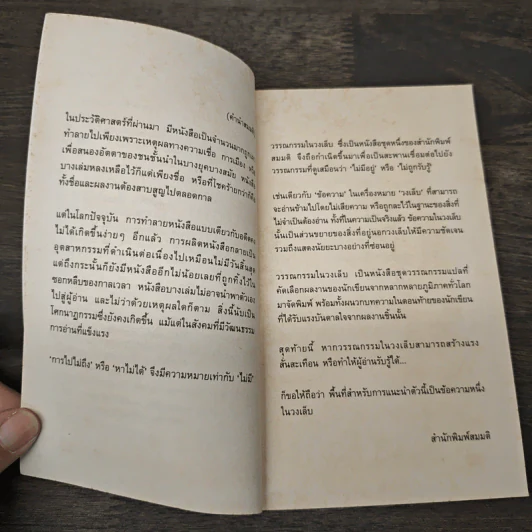 (คำนำ
ในประวัติศาสตร์ที่ผ่านมา มีหนังสือเป็นจำนวนมากถูก
ทำลายไปเพียงเพราะเหตุผลทางความเชื่อ การเมือง หรือ
เพื่อสนองอัตตาของชนชั้นนำในบางยุคบางสมัย หนังสือ
บางเล่มหลงเหลือไว้ก็แต่เพียงชื่อ หรือที่โชคร้ายกว่าก็คือ
ทั้งชื่อและผลงานต้องสาบสูญไปตลอดกาล
แต่ในโลกปัจจุบัน การทำลายหนังสือแบบเดียวกับอดีต
ไม่ได้เกิดขึ้นง่ายๆ อีกแล้ว การผลิตหนังสือกลายเป็น
อุตสาหกรรมที่ดำเนินต่อเนื่องไปเหมือนไม่มีวันสิ้นสุด
แต่ถึงกระนั้นก็ยังมีหนังสืออีกไม่น้อยเลยที่ถูกทิ้งไว้ใน
ซอกหลืบของกาลเวลา หนังสือบางเล่มไม่อาจนำพาตัวเอง
ไปสู่ผู้อ่าน และไม่ว่าด้วยเหตุผลใดก็ตาม สิ่งนี้นับเป็น
โศกนาฏกรรมซึ่งยังคงเกิดขึ้น แม้แต่ในสังคมที่มีวัฒนธรรม
การอ่านที่แข็งแรง
‘การไปไม่ถึง’ หรือ ‘หาไม่ได้’ จึงมีความหมายเท่ากับ ‘ไม่มี’
วรรณกรรมในวงเล็บ ซึ่งเป็นหนังสือชุดหนึ่งของสำนักพิมพ์
สมมติ จึงถือกำเนิดขึ้นมาเพื่อเป็นสะพานเชื่อมต่อไปยัง
วรรณกรรมที่ดูเสมือนว่า ‘ไม่มีอยู่’ หรือ ‘ไม่ถูกรับรู้’
เช่นเดียวกับ ‘ข้อความ’ ในเครื่องหมาย ‘วงเล็บ’ ที่สามารถ
จะอ่านข้ามไปโดยไม่เสียความ หรือถูกละไว้ในฐานะของสิ่งที่
ไม่จำเป็นต้องอ่าน ทั้งที่ในความเป็นจริงแล้ว ข้อความในวงเล็บ
นั้นเป็นส่วนขยายของสิ่งที่อยู่นอกวงเล็บให้มีความชัดเจน
รวมถึงแสดงนัยยะบางอย่างที่ซ่อนอยู่
วรรณกรรมในวงเล็บ เป็นหนังสือชุดวรรณกรรมแปลที่
คัดเลือกผลงานของนักเขียนจากหลากหลายภูมิภาคทั่วโลก
มาจัดพิมพ์ พร้อมทั้งผนวกบทความในตอนท้ายของนักเขียน
ที่ได้รับแรงบันดาลใจจากผลงานชิ้นนั้น
สุดท้ายนี้ หากวรรณกรรมในวงเล็บสามารถสร้างแรง
สั่นสะเทือน หรือทำให้ผู้อ่านรับรู้ได้...
ก็ขอให้ถือว่า พื้นที่สำหรับการแนะนำตัวนี้เป็นข้อความหนึ่ง
ในวงเล็บ
สำนักพิมพ์สมมติ